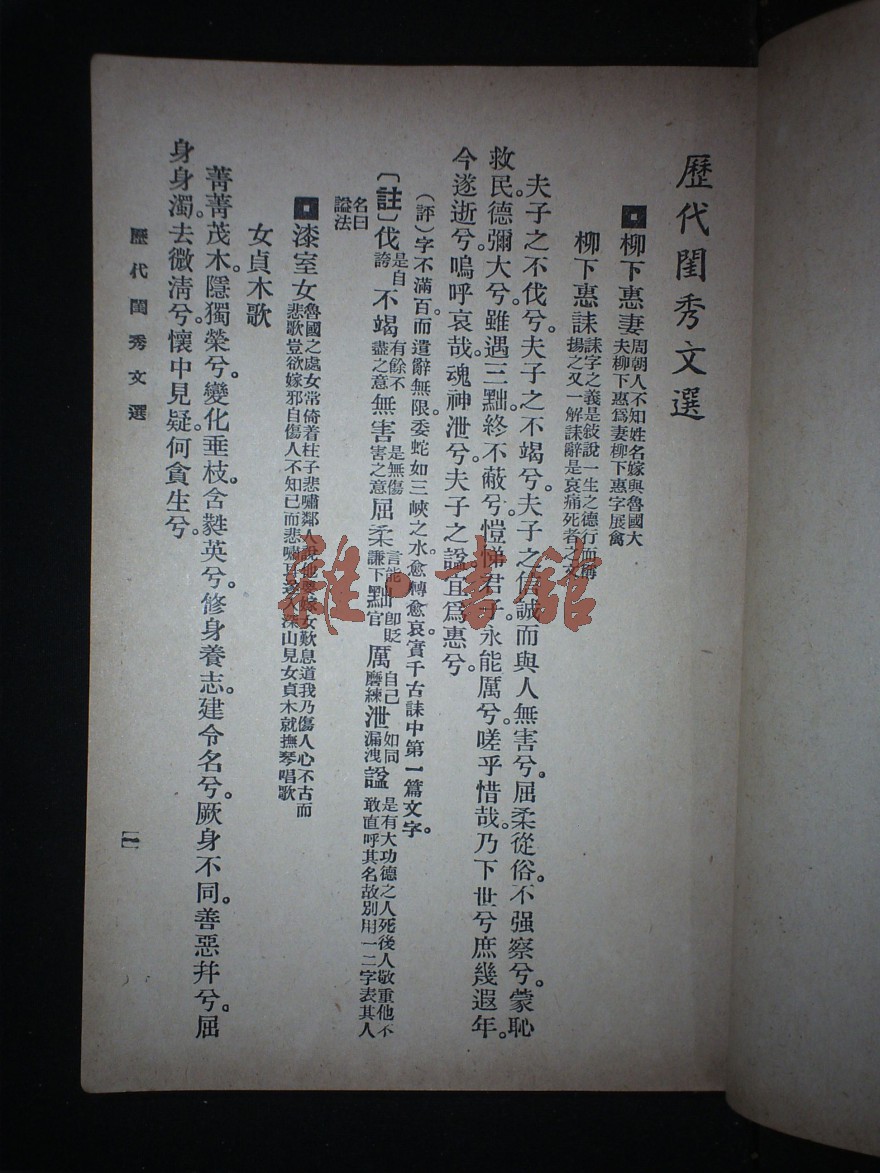 歷代閨秀文選
柳下惠妻 周朝人不知姓名嫁與魯國大
夫柳下惠爲妻柳下惠字展禽
柳下惠誄 誄字之義是敍說一生之德行而稱
揚之又一解誄辭是哀痛死者之文
夫子之不伐兮。夫子之不竭兮。夫子之信誠而與人無害兮。屈柔從俗。不强察兮。蒙恥
救民。德彌大兮。雖遇三黜。終不蔽兮。愷悌君子。永能厲兮。嗟乎惜哉。乃下世兮。庶幾遐年。
今遂逝兮。嗚呼哀哉。魂神泄兮。夫子之諡。宜爲惠兮。
（評）字不滿百。而遣辭無限。委蛇如三峽之水。愈轉愈哀。實千古誄中第一篇文字。
〔註〕伐 是自誇 不竭 有餘不盡之意 無害 是無傷害之意 屈柔 言能謙下 黜 卽貶官 厲 自己磨練 泄 如同漏洩 諡 是有大功德之人死後人敬重他不
敢直呼其名故別用一二字表其人
名曰
諡法
漆室女 魯國之處女常倚着柱子悲嘯鄰人說他要嫁女歎息道我乃傷人心不古而
悲歌豈欲嫁邪自傷人不知己而悲嘯耳遂入深山見女貞木就撫琴唱歌
女貞木歌
菁菁茂木。隱獨榮兮。變化垂枝。含蕤英兮。修身養志。建令名兮。厥身不同。善惡幷兮。屈
身身濁。去微淸兮。懷中見疑。何貪生兮。
歷代閨秀文選
一
雜·書館